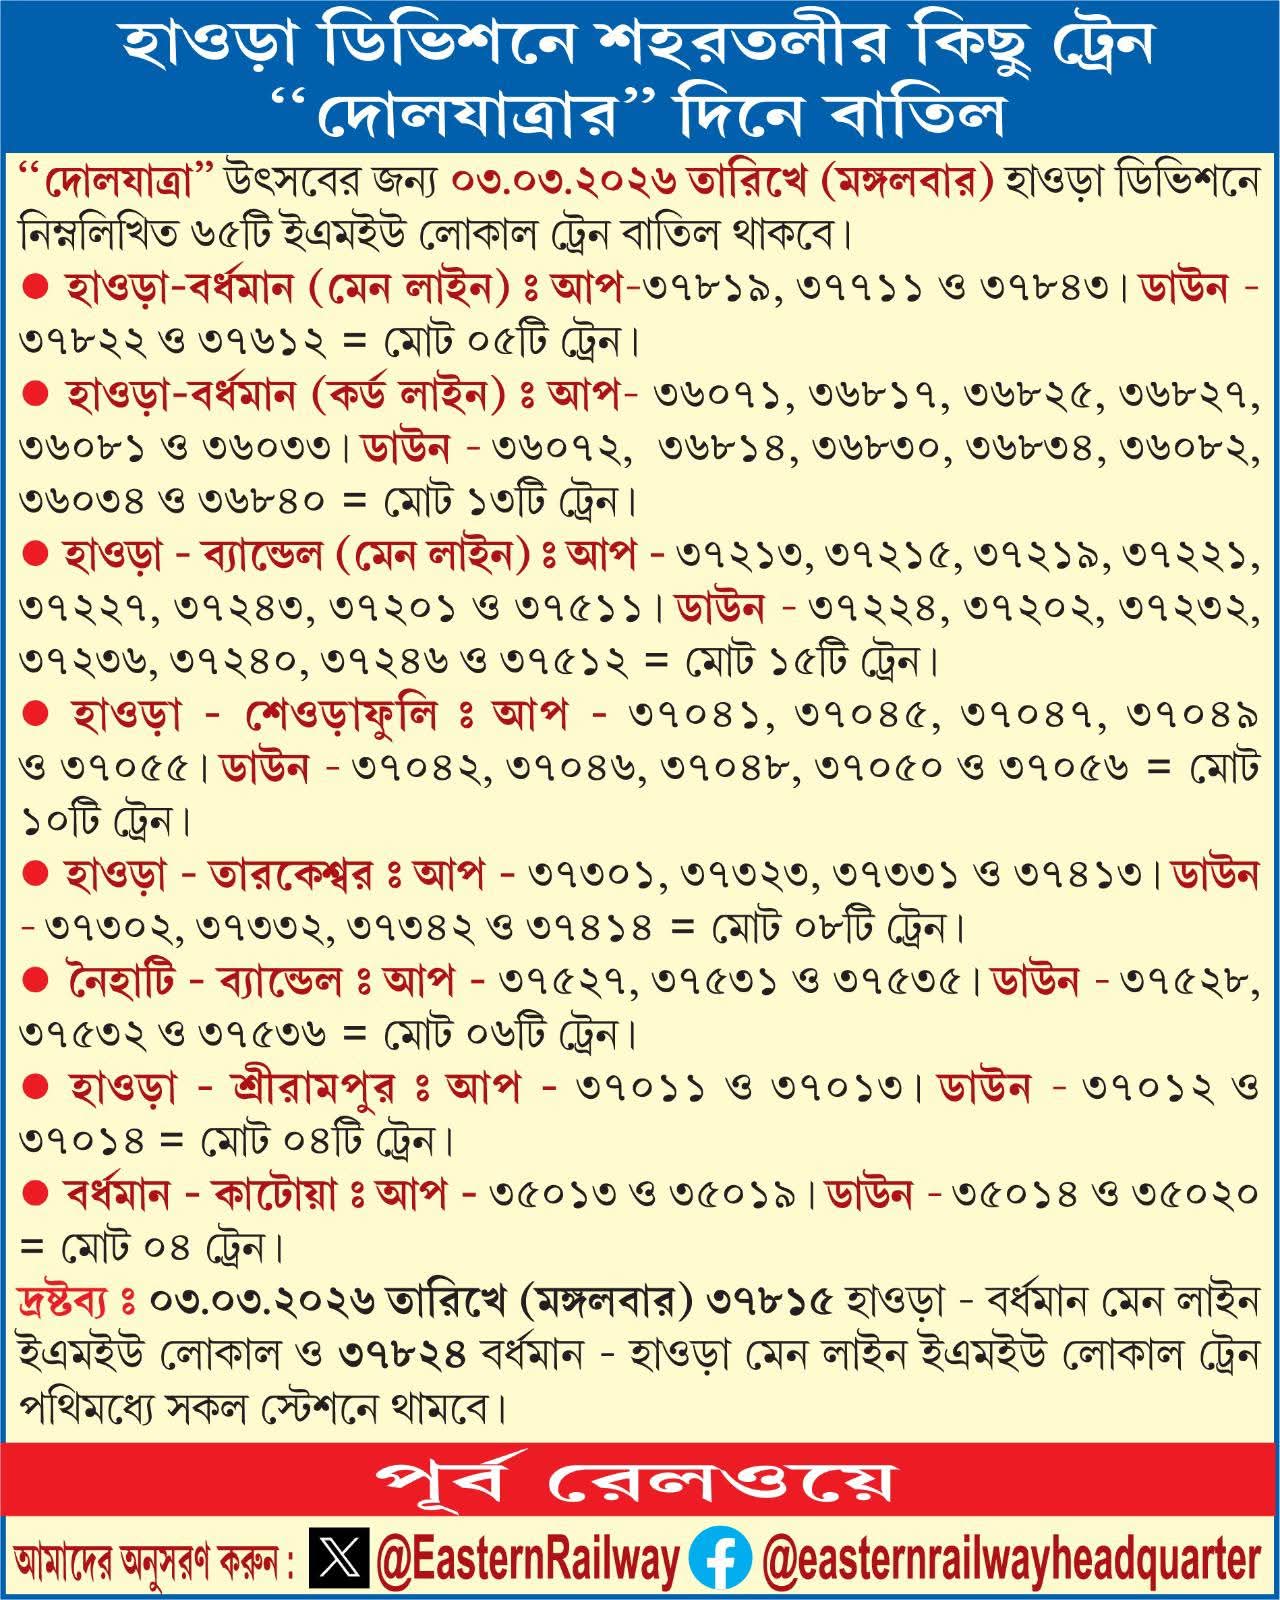 হাওড়া ডিভিশনে শহরতলীর কিছু ট্রেন
“দোলযাত্রার” দিনে বাতিল
“দোলযাত্রা” উৎসবের জন্য ০৩.০৩.২০২৬ তারিখে (মঙ্গলবার) হাওড়া ডিভিশনে
নিম্নলিখিত ৬৫টি ইএমইউ লোকাল ট্রেন বাতিল থাকবে।
● হাওড়া-বর্ধমান (মেন লাইন) ঃ আপ-৩৭৮১৯, ৩৭৭১১ ও ৩৭৮৪৩। ডাউন -
৩৭৮২২ ও ৩৭৬১২ = মোট ০৫টি ট্রেন।
● হাওড়া-বর্ধমান (কর্ড লাইন) ঃ আপ- ৩৬০৭১, ৩৬৮১৭, ৩৬৮২৫, ৩৬৮২৭,
৩৬০৮১ ও ৩৬০৩৩। ডাউন - ৩৬০৭২, ৩৬৮১৪, ৩৬৮৩০, ৩৬৮৩৪, ৩৬০৮২,
৩৬০৩৪ ও ৩৬৮৪০ = মোট ১৩টি ট্রেন।
● হাওড়া - ব্যান্ডেল (মেন লাইন) ঃ আপ - ৩৭২১৩, ৩৭২১৫, ৩৭২১৯, ৩৭২২১,
৩৭২২৭, ৩৭২৪৩, ৩৭২০১ ও ৩৭৫১১। ডাউন - ৩৭২২৪, ৩৭২০২, ৩৭২৩২,
৩৭২৩৬, ৩৭২৪০, ৩৭২৪৬ ও ৩৭৫১২ = মোট ১৫টি ট্রেন।
● হাওড়া - শেওড়াফুলি ঃ আপ - ৩৭০৪১, ৩৭০৪৫, ৩৭০৪৭, ৩৭০৪৯
ও ৩৭০৫৫। ডাউন - ৩৭০৪২, ৩৭০৪৬, ৩৭০৪৮, ৩৭০৫০ ও ৩৭০৫৬ = মোট
১০টি ট্রেন।
● হাওড়া - তারকেশ্বর ঃ আপ - ৩৭৩০১, ৩৭৩২৩, ৩৭৩৩১ ও ৩৭৪১৩। ডাউন
- ৩৭৩০২, ৩৭৩৩২, ৩৭৩৪২ ও ৩৭৪১৪ = মোট ০৮টি ট্রেন।
● নৈহাটি - ব্যান্ডেল ঃ আপ - ৩৭৫২৭, ৩৭৫৩১ ও ৩৭৫৩৫। ডাউন - ৩৭৫২৮,
৩৭৫৩২ ও ৩৭৫৩৬ = মোট ০৬টি ট্রেন।
● হাওড়া - শ্রীরামপুর ঃ আপ - ৩৭০১১ ও ৩৭০১৩। ডাউন - ৩৭০১২ ও
৩৭০১৪ = মোট ০৪টি ট্রেন।
● বর্ধমান - কাটোয়া ঃ আপ - ৩৫০১৩ ও ৩৫০১৯। ডাউন - ৩৫০১৪ ও ৩৫০২০
= মোট ০৪ ট্রেন।
দ্রষ্টব্য ঃ ০৩.০৩.২০২৬ তারিখে (মঙ্গলবার) ৩৭৮১৫ হাওড়া - বর্ধমান মেন লাইন
ইএমইউ লোকাল ও ৩৭৮২৪ বর্ধমান - হাওড়া মেন লাইন ইএমইউ লোকাল ট্রেন
পথিমধ্যে সকল স্টেশনে থামবে।
পূর্ব রেলওয়ে
আমাদের অনুসরণ করুন : X @EasternRailway f @easternrailwayheadquarter